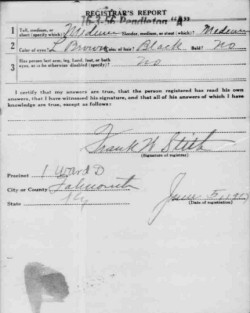 REGISTRAR'S REPORT
Pendleton "A"
1 Tall, medium, or short (specify which) Medium Slender, medium, or stout (which)? Medium
2 Color of eyes? L Brown Color of hair? Black Bald? No
3 Has person lost arm, leg, hand, foot, or both eyes, or is he otherwise disabled (specify)? no
I certify that my answers are true, that the person registered has read his own answers, that I have witnessed his signature, and that all of his answers of which I have knowledge are true, except as follows:
Frank W
(Signature of registrar)
Precinct 1 Ward D
City or County Falmouth
State Ky
June 5 1917
(Date of registration)